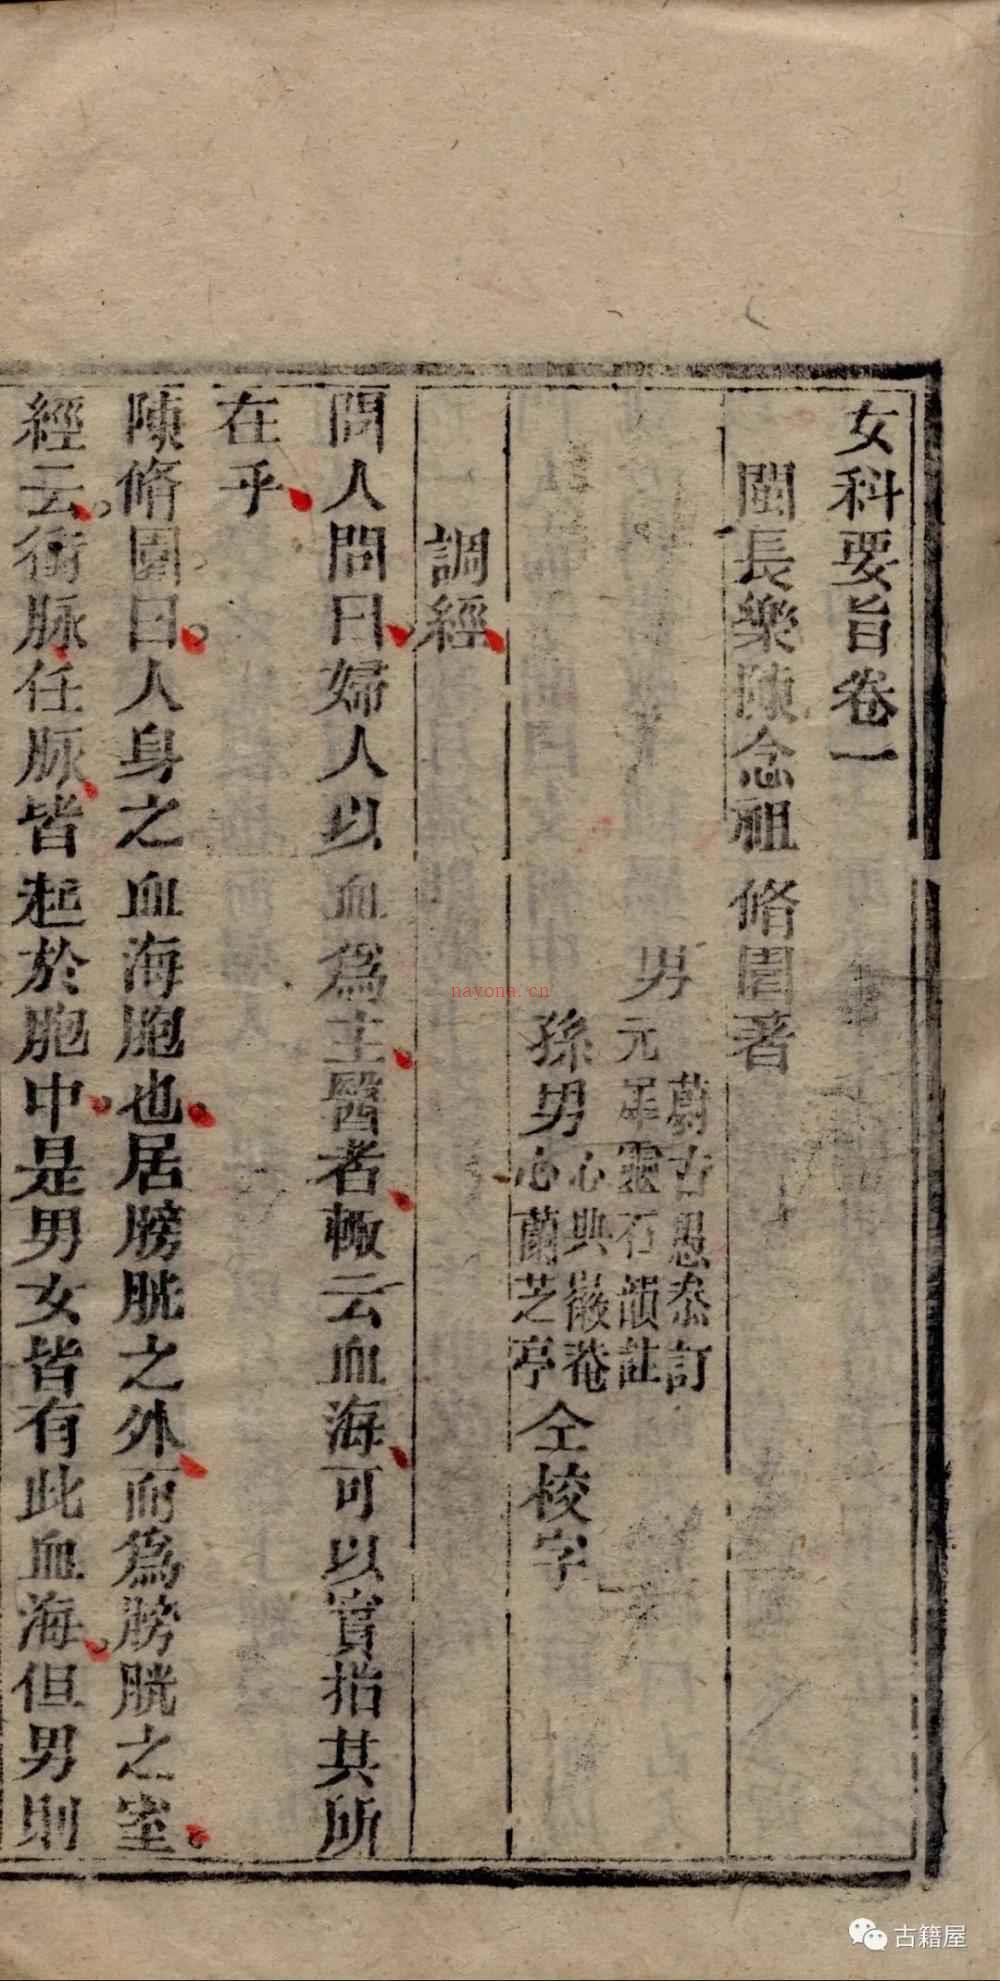 女科要旨卷一
閩長樂陳念祖脩園著
男
蔚古愚叅訂
元犀靈石韻註
孫男
心典徽菴
心蘭芝亭
仝校字
調經
門人問曰婦人以血為主醫者輙云血海可以實指其所
在乎
陳脩園曰人身之血海胞也居膀胱之外而為膀胱之室
經云衝脉任脉皆起於胞中是男女皆有此血海但男則
nayona.cn
古籍屋